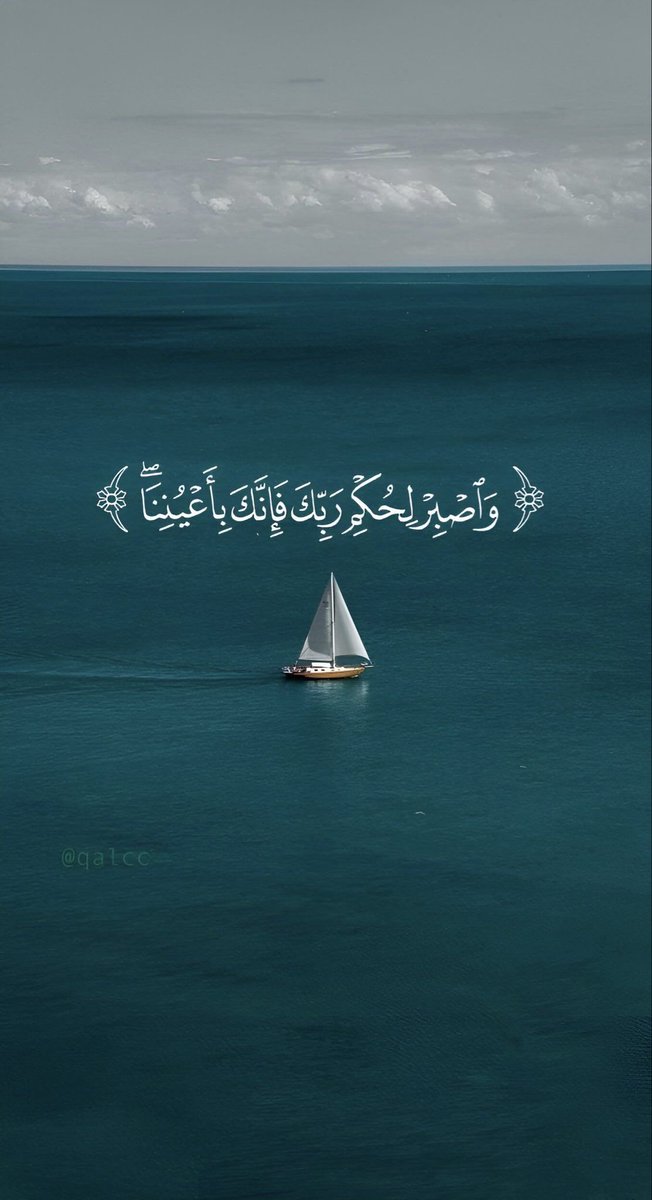 ﴿ وَٱصْبِرْ لِحُكْمِ رَبِّكَ فَإِنَّكَ بِأَعْيُنِنَاۖ ﴾
@qalcc